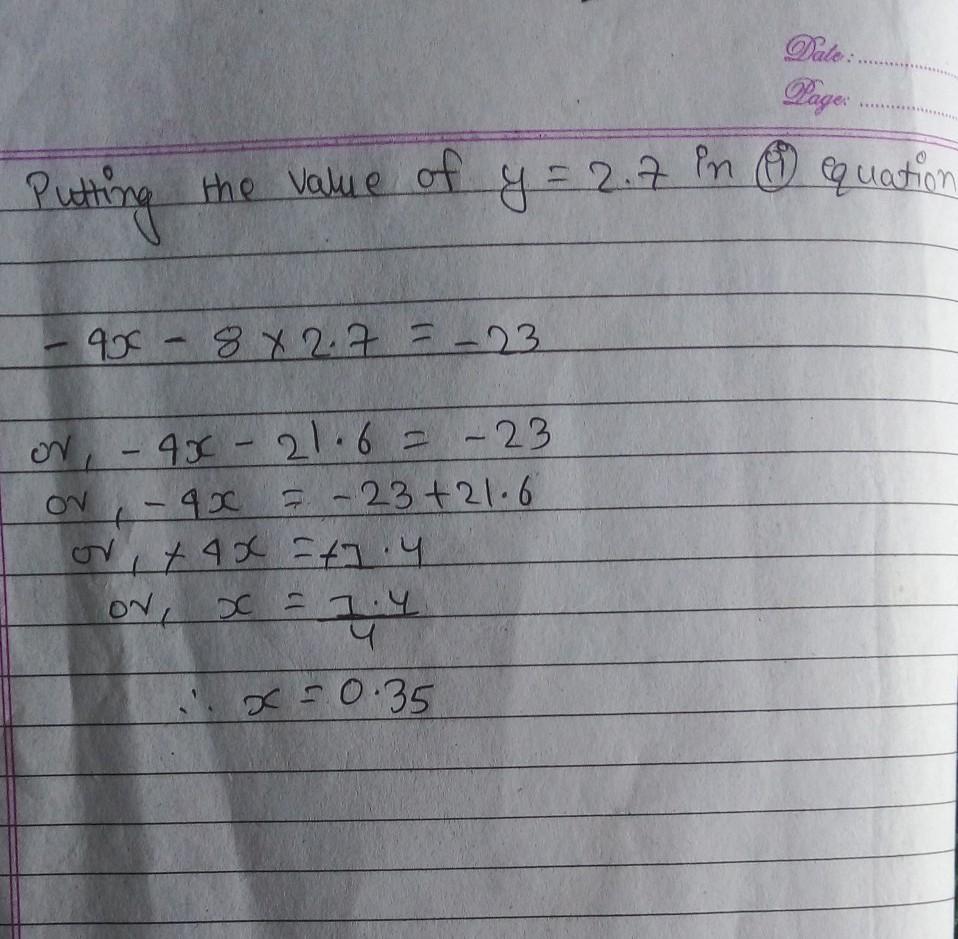 Date:
Page:
Putting the value of y = 2.7 in (ii) equation
- 4x - 8 × 2.7 = -23
or, - 4x - 21.6 = -23
or, - 4x = -23 + 21.6
or, + 4x = +1.4
or, x = 1.4
4
∴ x = 0.35